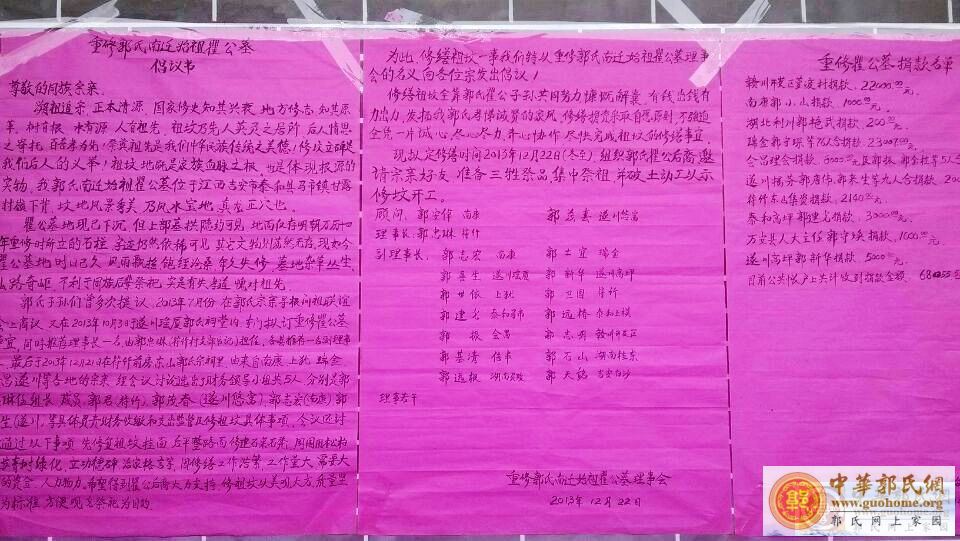 重修郭氏南迁始祖瞿公墓
倡议书
尊敬的同族宗亲
溯祖追宗,正本清源,国家修史知其兴衰,地方修志,知其原
革,树有根,水有源,人有祖先,祖坟乃先人英灵之居所,后人情思
之寄托,百善孝为先,崇宗祭祖是我们中华民族传统之美德,修坟立碑是
我们后人的义举!祖坟地既是家族血脉之根,也是体现根源的
实物,我郭氏南迁始祖瞿公墓位于江西吉安市泰和县马市镇甘露
村下背,坟地风景秀美,乃风水宝地,真龙正穴也。
瞿公墓地现已下沉,但上部墓拱隐约可见,地面仅存明朝万历
年重修时所立的石柱,字迹仍然依稀可见,其它文物则荡然无存,现如今
公墓地,时以已久,风雨飘摇,饱经沧桑,年久失修,墓地杂草丛生,
路崎岖,不利于同族后辈祭祀,实是有失孝道,愧对祖先。
郭氏子孙们曾多次提议,2013年7月份在郭氏宗亲寻根问祖联谊
会上商议,又在2013年10月3日于遂川瑶厦郭氏祠堂内
宜,同时推荐理事长一名,由郭忠琳(符竹村支部书记)担任,各县推荐一名副理事
最后于2013年12月21日在符竹前房东山郭氏宗祠里,由来自南康,上犹,瑞金
昌遂川等各地的宗亲,经会议讨论选出了财务领导小组共5人,分别是郭
琳任组长,成员,郭君(符竹)郭茂春(遂川悠富)郭志宏(南康)郭
生(遂川),等具体负责财务收缴和支出监督及修祖坟具体事项,会议还讨
通过以下事项,先修复祖坟挂面,后平整路面,修建石桌石凳,周围用松柏
常青树绿化,立功德碑,治家格言等,因修缮工作浩繁,工作量大,需要大
的资金,人力物力,希望得到瞿公后裔大力支持,修祖坟以美观大方,质量
为标准,方便观光祭祀为目的
为此,修缮祖坟一事我们特以重修郭氏南迁始祖瞿公墓理事
会的名义向各位宗发出倡议!
修缮祖坟全靠郭氏瞿公子孙共同努力,慷慨解囊,有钱出钱有
力出力,发扬我郭氏孝悌诚算的家风,修缮捐资采取自愿原则,不强迫
全凭一片诚心,尽心尽力,齐心协作,尽快完成祖坟的修缮事宜
现拟定修缮时间2013年12月22日(冬至),组织郭氏瞿公后裔,邀
请宗亲好友,准备三牲祭品,集中祭祖,并破土动工以示
修坟开工。
顾问,郭宗伟 南康 郭茂春 遂川悠富
理事长,郭忠琳 符竹
副理事长,郭志宏 南康 郭士宜 瑞金
郭喜生 遂川瑶厦 郭新华 遂川高坪
郭世依 上犹 郭卫国 符竹
郭建名 泰和高市 郭远桥 泰和上模
郭振 会昌 郭志勇 赣州开发区
郭基清 信丰 郭石山 湖南桂东
郭远根 湖南炎陵 郭天铭 吉安白沙
理事若干
重修郭氏南迁始祖瞿公墓理事会
2013年12月22日
重修瞿公墓捐款名单
赣州开发区凌波村捐款,22000.00元,
南康郭小山捐款 1000.00元,
湖北利川郭艳武捐款,200.00元
瑞金郭宇琼等76人合捐款,2300.00元
会昌理会捐款,6000元
遂川扬芬郭唐伟,郭来生等九人合捐款 200
符竹东山集资捐款,2160元
泰和高坪郭建名捐款,3000.00元
万安县人大主任郭守瑛捐款,1000.00元
遂川高坪郭新华捐款,5000元
目前公共帐户上共计收到捐款金额,68
中華郭氏網
www.guohome.org
郭氏网上家园